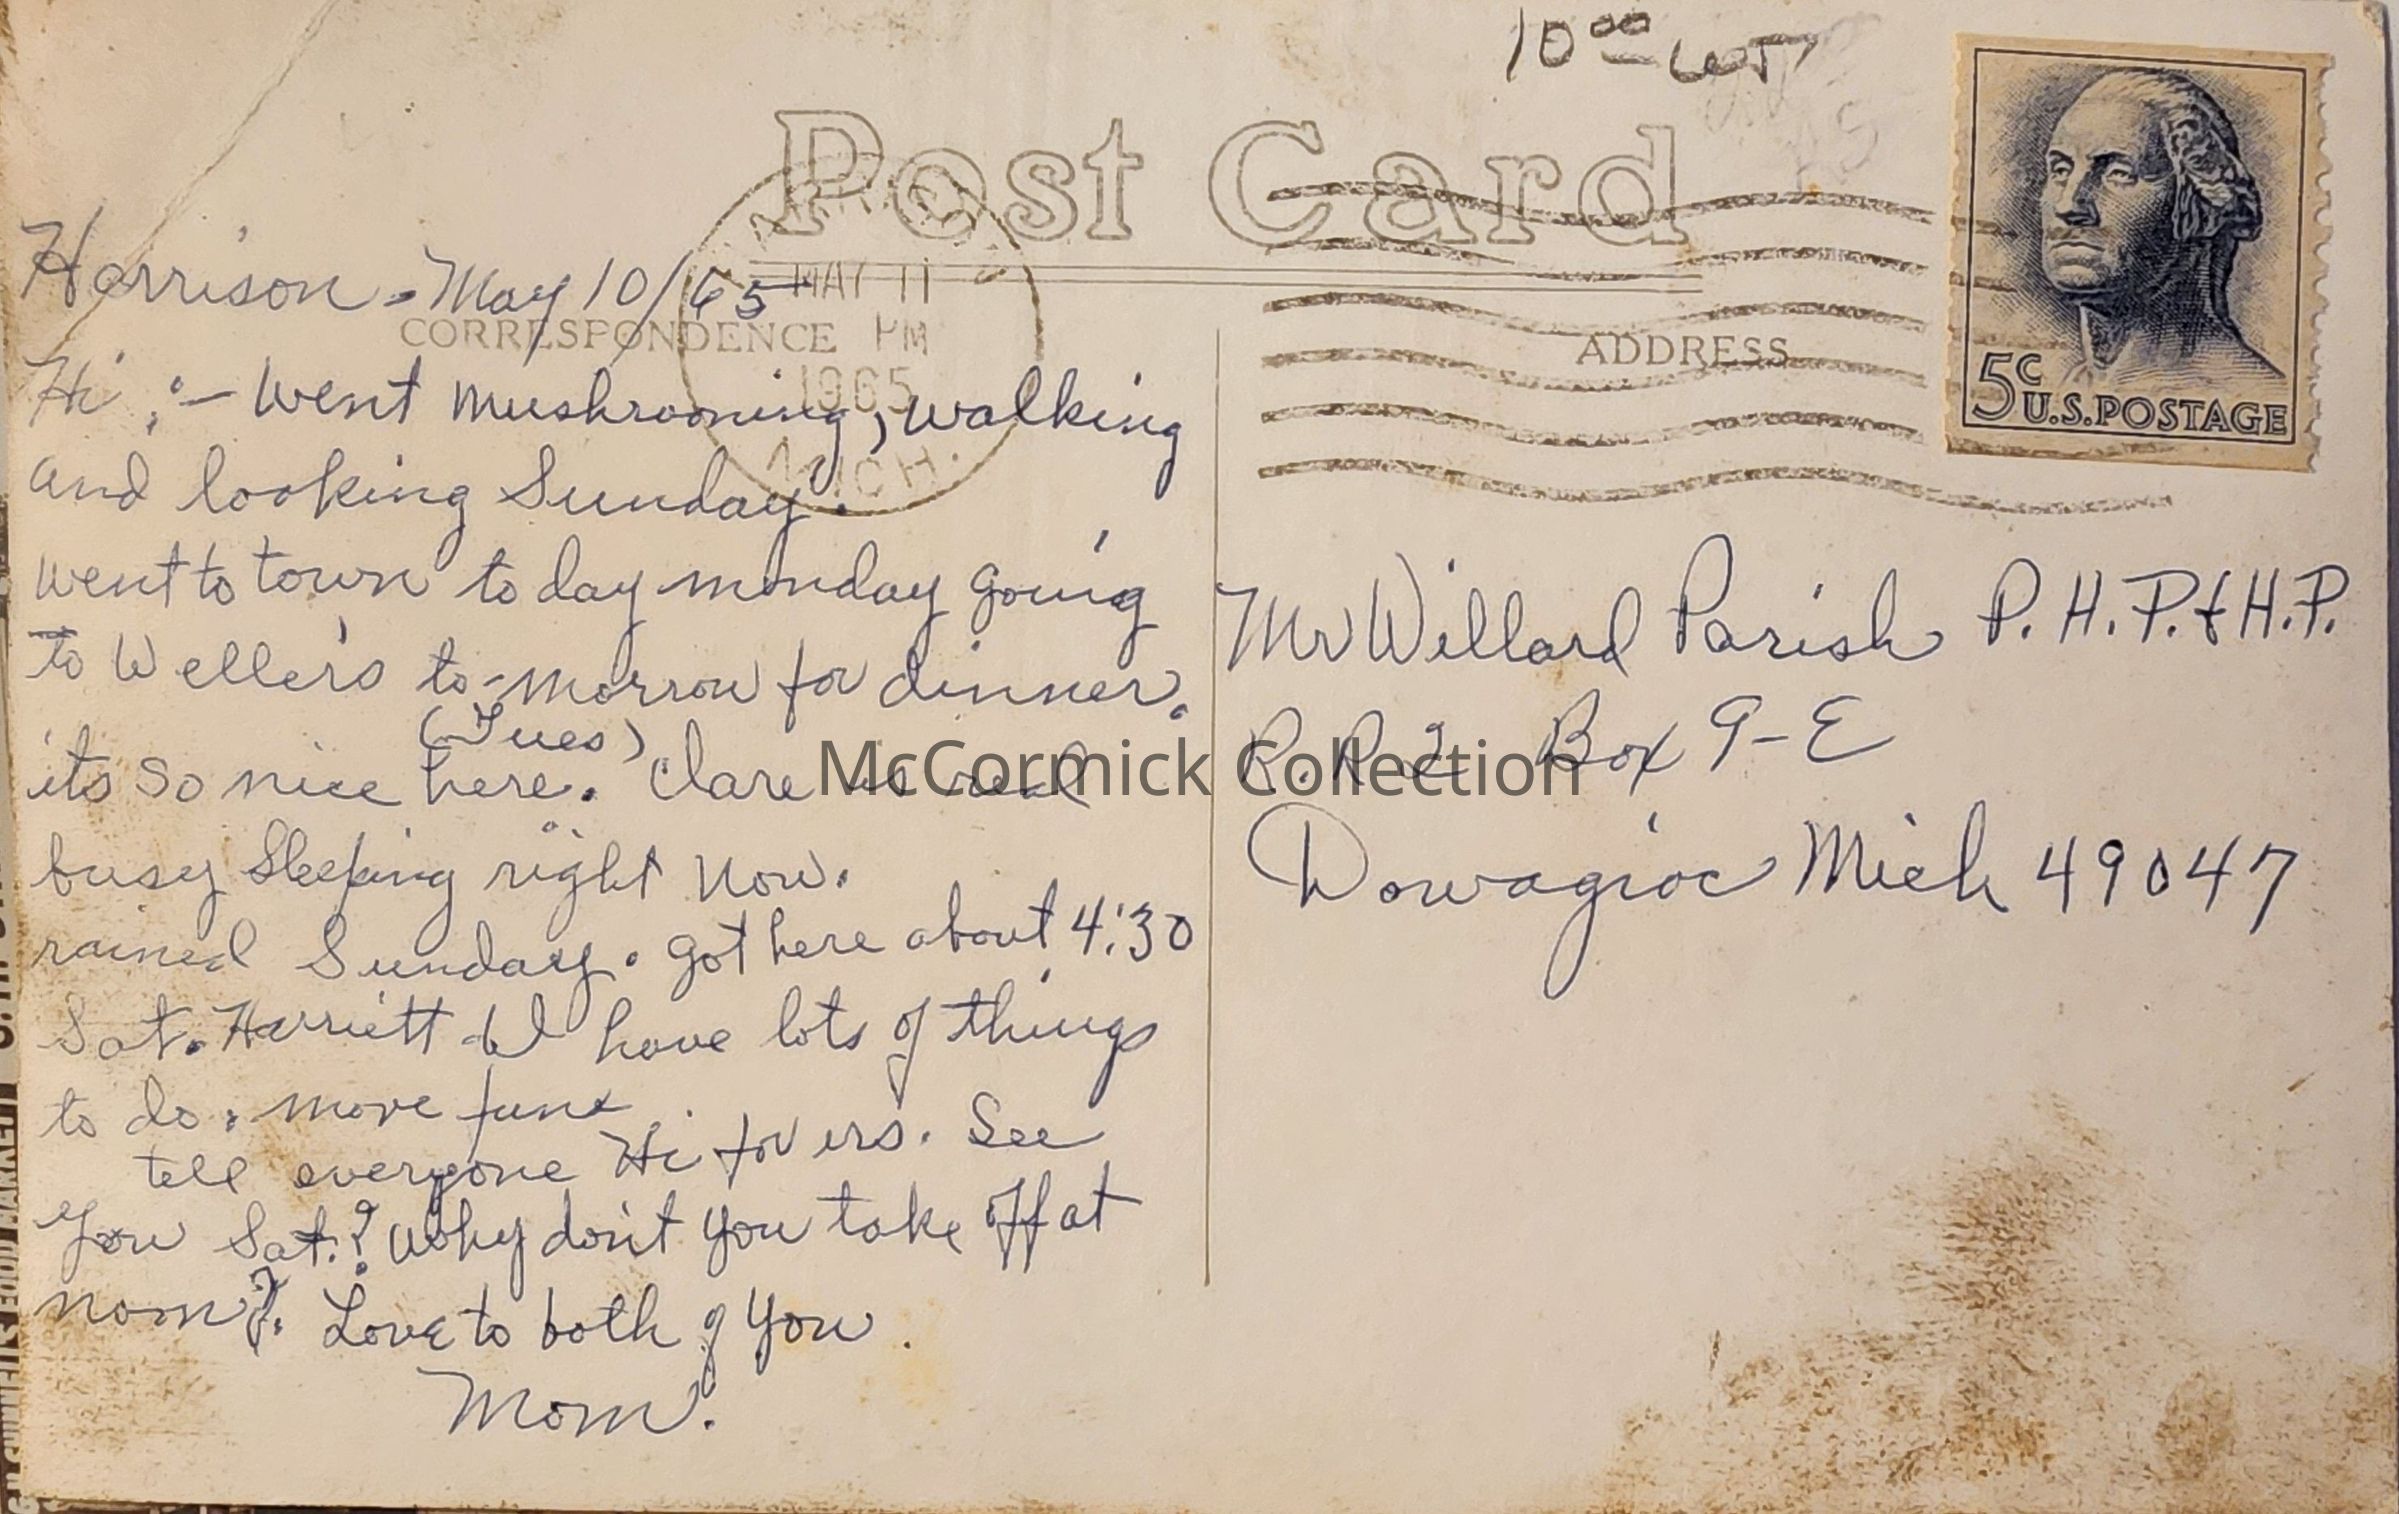 10⁰⁰ LOT
Post Card
Harrison - May 10/65
MAY 11
CORRESPONDENCE
PM
ADDRESS
1965
MICH.
5c U.S.POSTAGE
Hi :- Went mushrooning, walking
and looking Sunday.
went to town to day monday going
to Weller's to-morrow for dinner.
(Tues)
its so nice here. Clare is real
busy sleeping right now.
rained Sunday. got here about 4:30
Sat. Harriett & I have lots of things
to do. more fun
tell everyone Hi for us. See
you Sat.? Why don't you take off at
noon?. Love to both of you.
Mom.
Mr Willard Parish P.H.P. & H.P.
R.R 2 Box 9-E
Dowagiac Mich 49047
McCormick Collection
FOOD MARKET